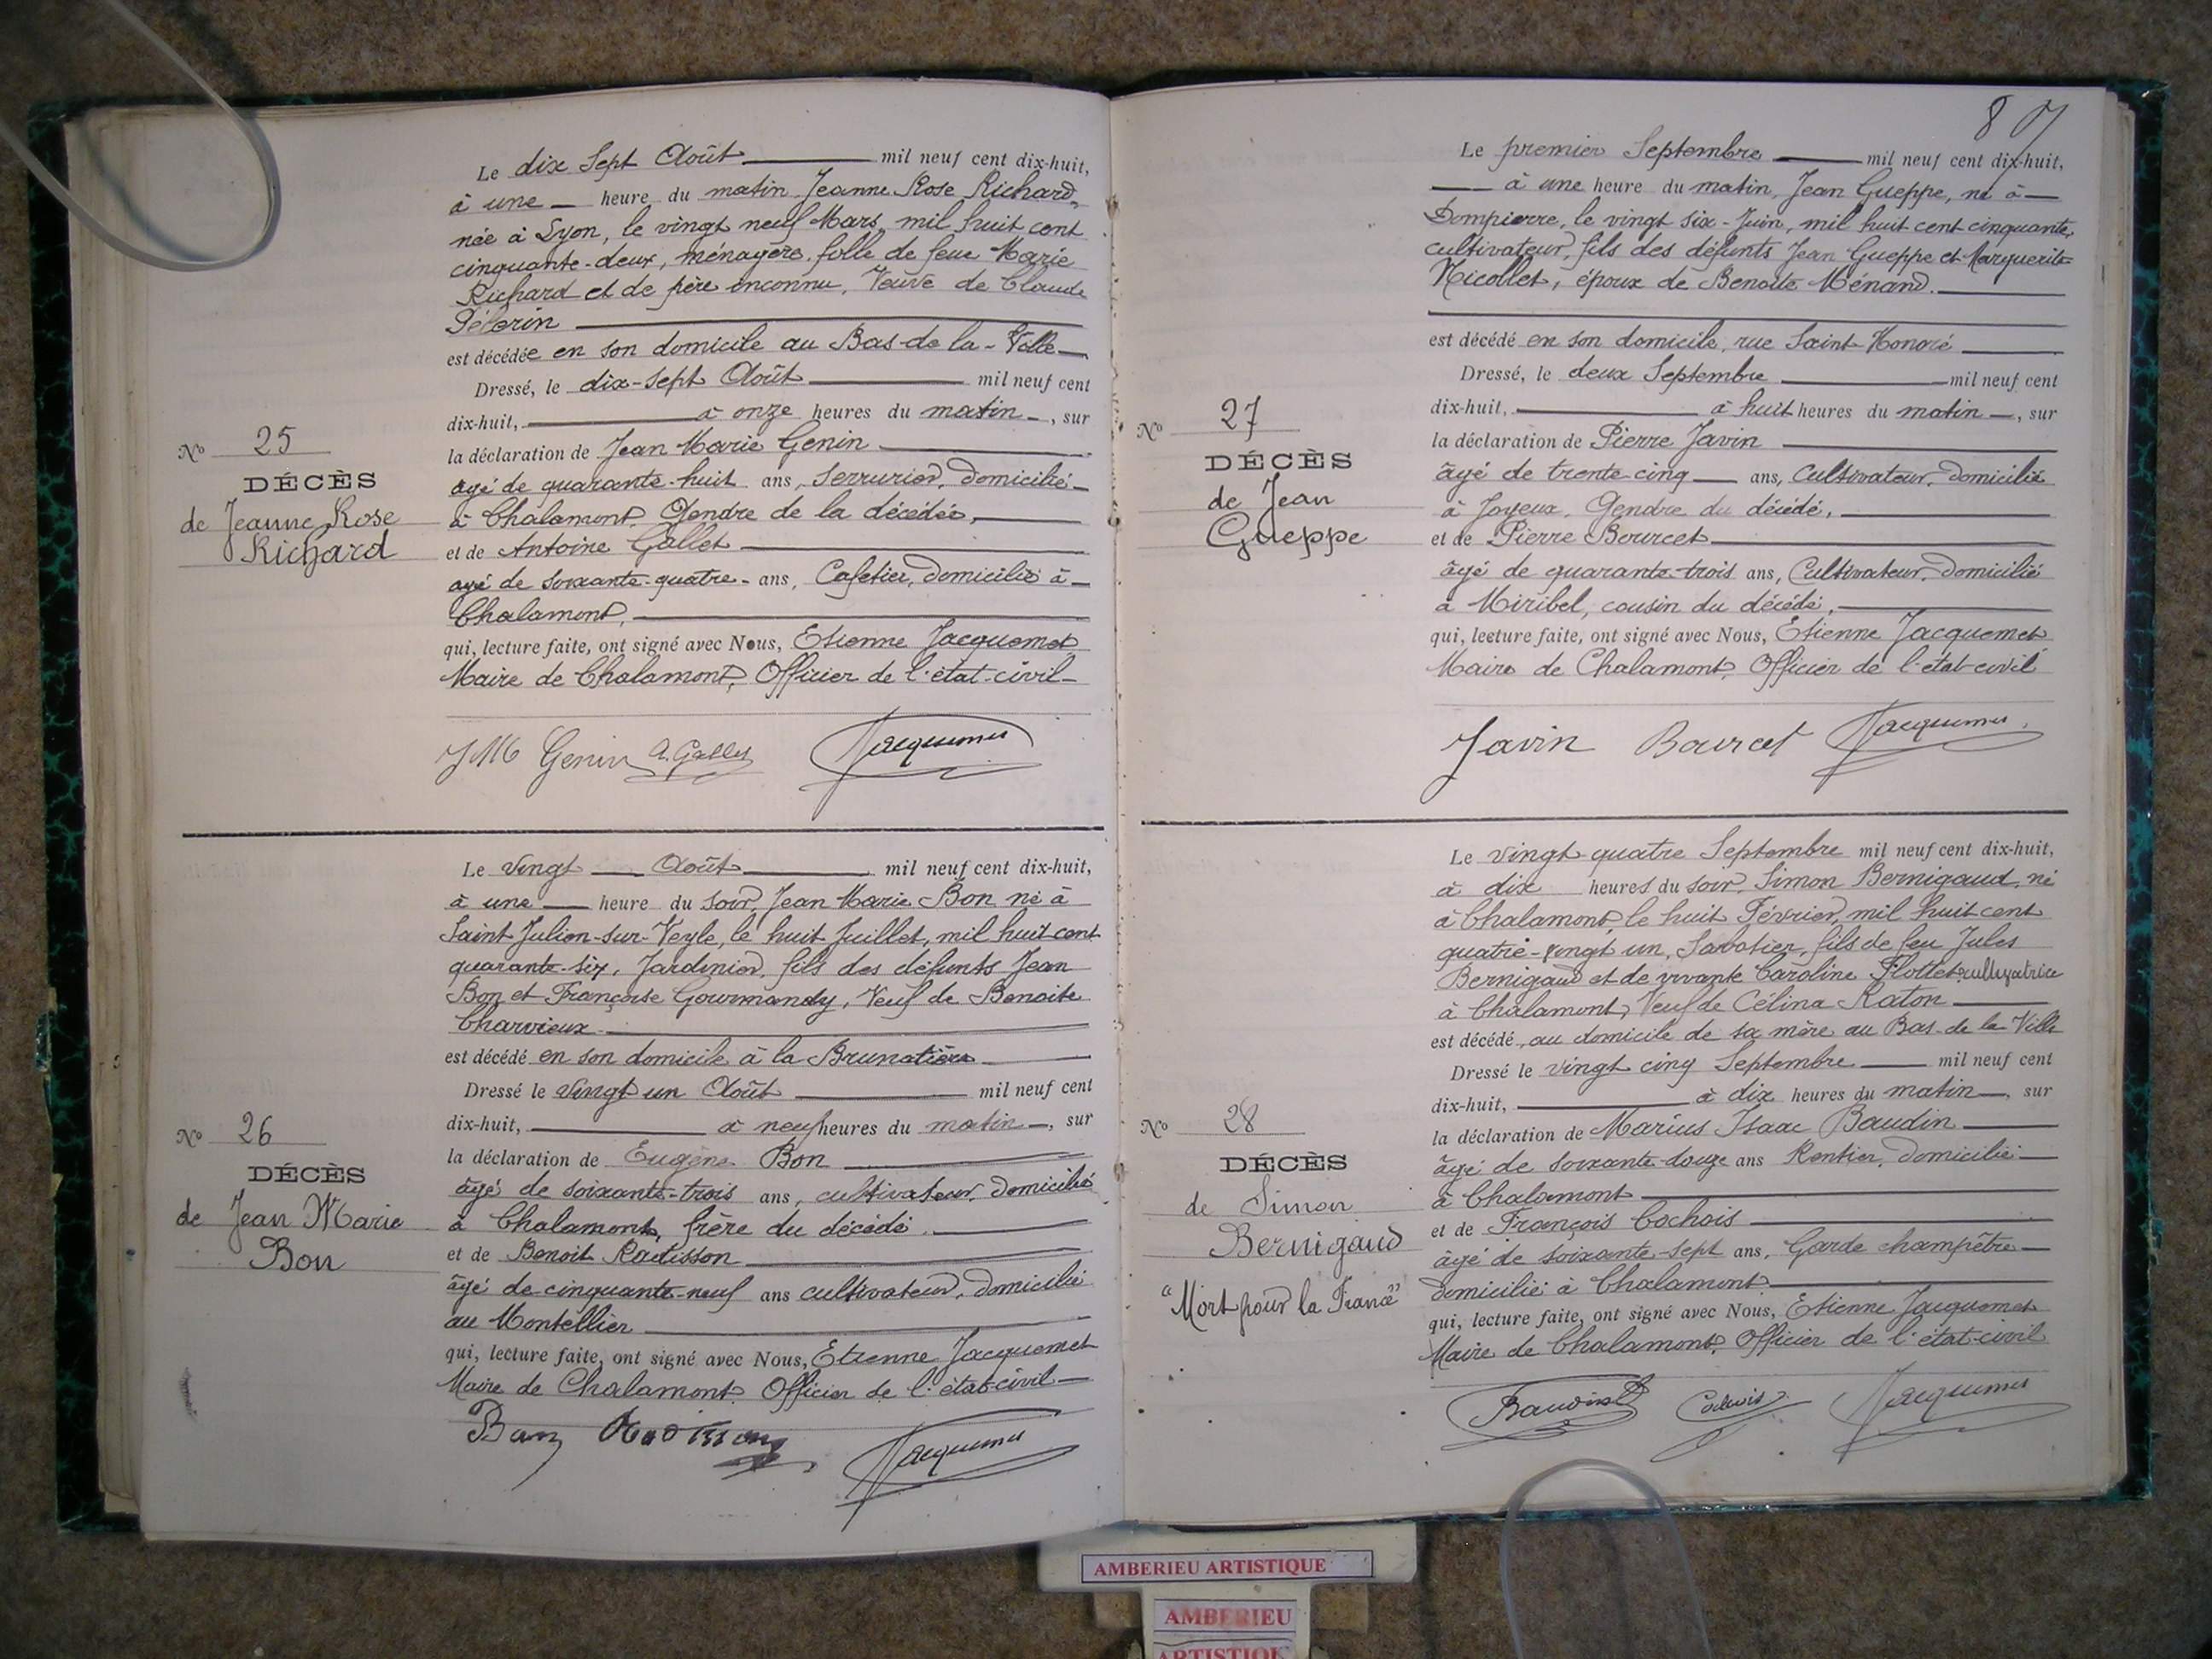 Le dix Sept Août mil neuf cent dix-huit,
à une heure du matin Jeanne Rose Richard,
née à Lyon, le vingt neuf Mars, mil huit cent
cinquante-deux, ménagère, fille de feue Marie
Richard et de père inconnu, Veuve de Claude
Pélerin
est décédée en son domicile au Bas-de la-Ville
Dressé, le dix-Sept Août mil neuf cent
dix-huit, à onze heures du matin, sur
la déclaration de Jean Marie Genin
âgé de quarante-huit ans, Serrurier, domicilié
à Chalamont, Gendre de la décédée,
et de Antoine Gallet
âgé de soixante-quatre ans, Cafetier, domicilié à
Chalamont,
qui, lecture faite, ont signé avec Nous, Etienne Jacquemet
Maire de Chalamont, Officier de l'état-civil
No 25
DÉCÈS
de Jeanne Rose
Richard
JM Genin A. Gallet Jacquemet
Le vingt Août mil neuf cent dix-huit,
à une heure du soir, Jean Marie Bon né à
Saint Julien-sur-Veyle, le huit Juillet, mil huit cent
quarante-six, Jardinier, fils des défunts Jean
Bon et Françoise Gourmandy, Veuf de Benoite
Charvieux
est décédé en son domicile à la Brunatière
Dressé le vingt un Août mil neuf cent
dix-huit, à neuf heures du matin, sur
la déclaration de Eugène Bon
âgé de soixante-trois ans, cultivateur, domicilié
à Chalamont, frère du décédé
et de Benoit
âgé de cinquante-neuf ans cultivateur, domicilié
au Montellier
qui, lecture faite, ont signé avec Nous, Etienne Jacquemet
Maire de Chalamont Officier de l'état-civil
No 26
DÉCÈS
de Jean Marie
Bon
Bon Jacquemet
87
Le premier Septembre mil neuf cent dix-huit,
à une heure du matin, Jean Gueppe, né à
Dompierre, le vingt six-Juin, mil huit cent cinquante,
cultivateur, fils des défunts Jean Gueppe et Marguerite
Nicollet, époux de Benoite Ménand.
est décédé en son domicile, rue Saint-Honoré
Dressé, le deux Septembre mil neuf cent
dix-huit, à huit heures du matin, sur
la déclaration de Pierre Javin
âgé de trente-cinq ans, Cultivateur, domicilié
à Joyeux, Gendre du décédé,
et de Pierre Bourcet
âgé de quarante-trois ans, Cultivateur, domicilié
à Miribel, cousin du décédé,
qui, lecture faite, ont signé avec Nous, Etienne Jacquemet
Maire de Chalamont, Officier de l'état-civil
No 27
DÉCÈS
de Jean
Gueppe
Javin Bourcet Jacquemet
Le vingt-quatre Septembre mil neuf cent dix-huit,
à dix heures du soir, Simon Bernigaud, né
à Chalamont, le huit Février, mil huit cent
quatre-vingt un, Sabotier, fils de feu Jules
Bernigaud et de vivante Caroline Flottet cultivatrice
à Chalamont, Veuf de Célina Raton
est décédé, au domicile de sa mère au Bas-de la Ville
Dressé le vingt cinq Septembre mil neuf cent
dix-huit, à dix heures du matin, sur
la déclaration de Marius Isaac Baudin
âgé de soixante-douze ans Rentier, domicilié
à Chalamont
et de François Cochois
âgé de soixante-sept ans, Garde champêtre
domicilié à Chalamont
qui, lecture faite, ont signé avec Nous, Etienne Jacquemet
Maire de Chalamont, Officier de l'état-civil
No 28
DÉCÈS
de Simon
Bernigaud
"Mort pour la France"
Baudin Cochois Jacquemet
AMBERIEU ARTISTIQUE
AMBERIEU